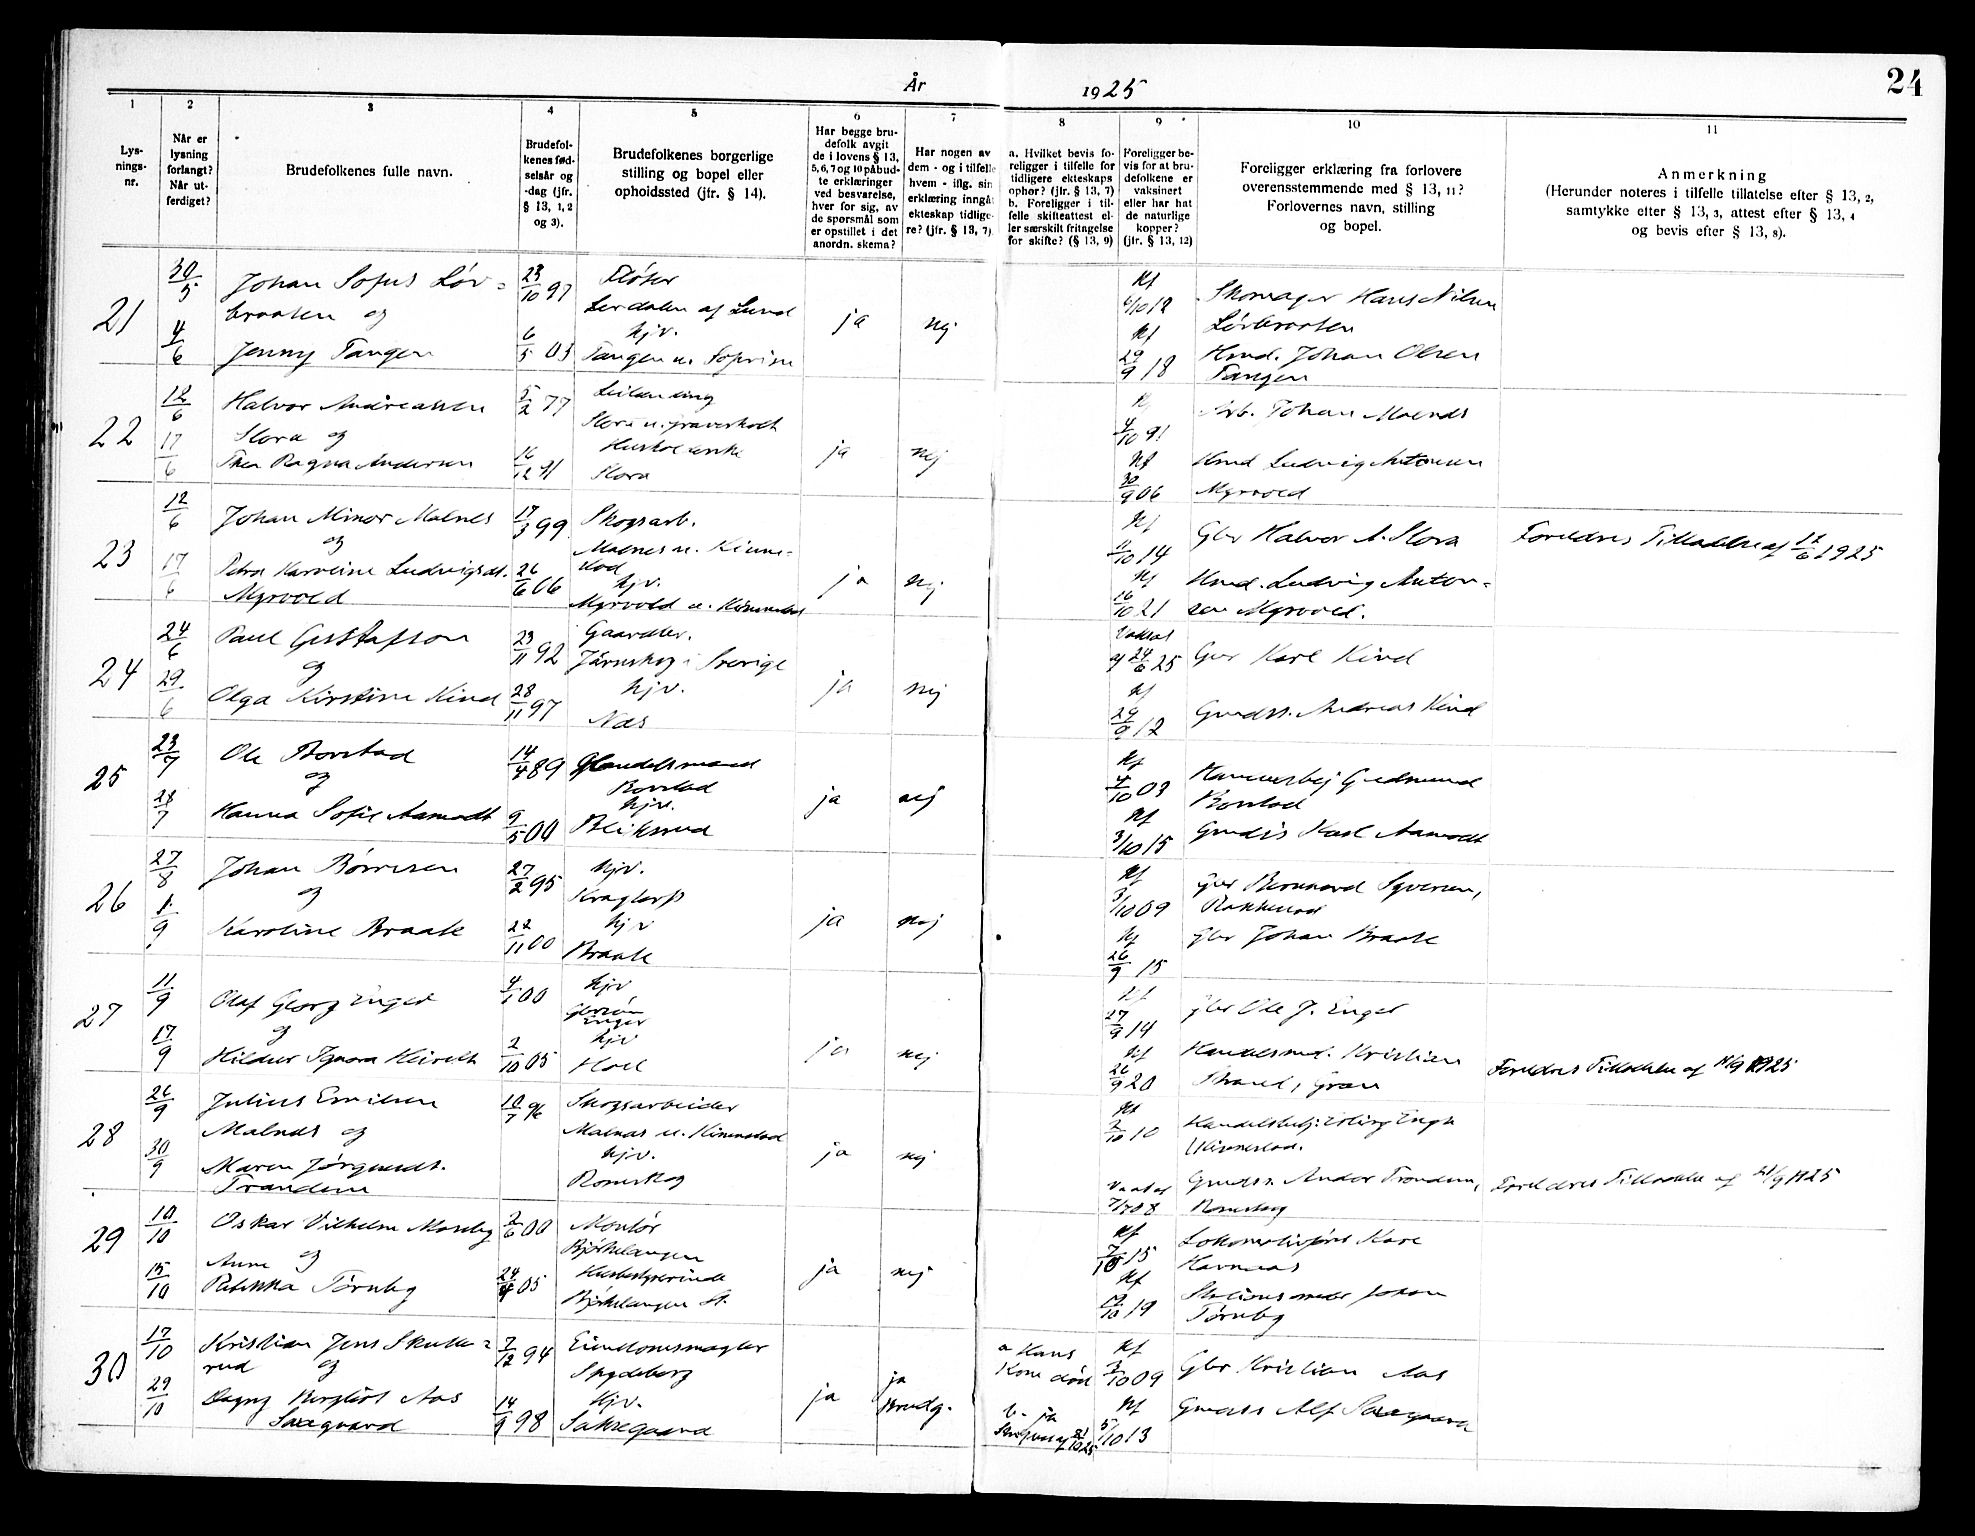 24
År 1925
1
2
3
4
5
6
7
8
9
10
11
Lys-
nings-
nr.
Når er
lysning
forlangt?
Når ut-
ferdiget?
Brudefolkenes fulle navn.
Brudefol-
kenes fød-
selsår og
-dag (jfr.
§ 13, 1, 2
og 3).
Brudefolkenes borgerlige
stilling og bopel eller
opholdssted (jfr. § 14).
Har begge bru-
defolk avgit
de i lovens § 13,
5, 6, 7 og 10 påbud-
te erklæringer
ved besvarelse,
hver for sig, av
de spørsmål som
er opstillet i det
anordn. skema?
Har nogen av
dem - og i tilfelle
hvem - iflg. sin
erklæring inngå
ekteskap tidlige-
re? (jfr. § 13, 7)
a. Hvilket bevis fo-
religger i tilfelle for
tidligere ekteskaps
ophør? (jfr. § 13, 7)
b. Foreligger i til-
felle skifteattest el-
ler særskilt fritagelse
for skifte? (§ 13, 9)
Foreligger be-
vis for at bru-
defolkene er
vaksinert
eller har hat
de naturlige
kopper?
(jfr. § 13, 12)
Foreligger erklæring fra forlovere
overensstemmende med § 13, 11?
Forlovernes navn, stilling
og bopel.
Anmerkning
(Herunder noteres i tilfelle tillatelse efter § 13, 2,
samtykke efter § 13, 3, attest efter § 13, 4
og bevis efter § 13, 8).
21
30/5
4/6
Johan Sofus Løv-
braaten og
Jenny Tangen
23/10 97
6/5 03
Fløter
Lerdalen af Lund
hjv.
Tangen u.
ja
nej
Kf
6/10 12
Kf
29/9 18
Skomager Hans Nilsen
Løvbraaten
Hmd. Johan Olsen
Tangen
22
12/6
17/6
Halvor Andreassen
Slora og
Thea Ragna Andersen
5/2 77
16/12 91
Leilending
Slora u.
Slora
ja
nej
4/10 91
Kf
30/9 06
Arb. Johan Malnes
Hmd Ludvig Antonsen
Myrvold
23
12/6
17/6
Johan Minor Malnes
og
Petra Karoline Ludvigsdt.
Myrvold
17/3 99
26/6 06
Skogsarb.
Malnes u. Kinne-
stad
hjv.
Myrvold u. Kinnestad
ja
nej
Kf
11/10 14
Kf
16/10 21
Gbr Halvor A. Slora
Hmd. Ludvig Anton-
sen Myrvold.
Foreldres Tilladelse af 12/6 1925
24
24/6
29/6
Paul Gustafson
og
Olga Kirstine Kind
23/11 92
28/11 97
Gaardbr.
Järnskog i Sverige
hjv.
Næs
ja
nej
Vaksat
af 24/6 25
Kf
29/9 12
Gbr Karl Kind
Gmdss. Andreas Kind
25
23/7
28/7
Ole Borstad
og
Hanna Sofie Aamodt
14/4 89
9/5 00
Handelsmand
Borstad
hjv.
Bliksrud
ja
nej
Kf
4/10 03
Kf
3/10 15
Gudmund
Borstad
Karl Aamodt
26
27/8
1/9
Johan Børresen
og
Karoline Braate
27/2 95
22/11 00
hjv.
Kragtorp
hjv
Braate
ja
nej
Kf
3/10 09
Kf
26/9 15
Gbr Bernhard Syversen,
Rakkestad
Gbr Johan Braate
27
11/9
17/9
Olaf Georg Enger
og
Hildur
4/1 00
2/10 05
hjv
Enger
hjv
Hoel
ja
nej
Kf
27/9 14
Kf
26/9 20
Gbr Ole J. Enger
Handelsmd. Kristian
Strand, Gran
Foreldres Tilladelse af 11/9 1925
28
26/9
30/9
Julius Emilsen
Malnes og
Maren Jørgensdt.
Trandem
10/7 96
Skogsarbeider
Malnæs u. Kinnestad
hjv.
Romskog
ja
nej
Kf
2/10 10
Vaks af
7/7 08
Handelsbetj. Erling Engh
Kinnestad.
Gmdss. Andor Trondem,
Romskog
Foreldres Tilladelse af 21/9 1925
29
10/10
15/10
Oskar Vilhelm Moseby
og
Anne
Rebekka Tørnby
2/6 00
24/4 05
Montør
Bjørkelangen
Husbestyrerinde
Bjørkelangen St.
ja
nej
Kf
7/10 15
Kf
19/10 19
Lokomotivfører Kare
Havnaas
Stationsmester Johan
Tørnby
30
17/10
29/10
Kristian Jens Skulle-
rud og
Dagny Bergliot Aas
Saxegaard
7/12 94
14/9 98
Eiendomsmægler
Spydeberg
hjv.
Saxegaard
ja
ja
Brudg.
a Hans
Kone død
b. ja
Kf
3/10 09
Kf
5/10 13
Gbr Kristian Aas
Gmdss Alf Saxegaard